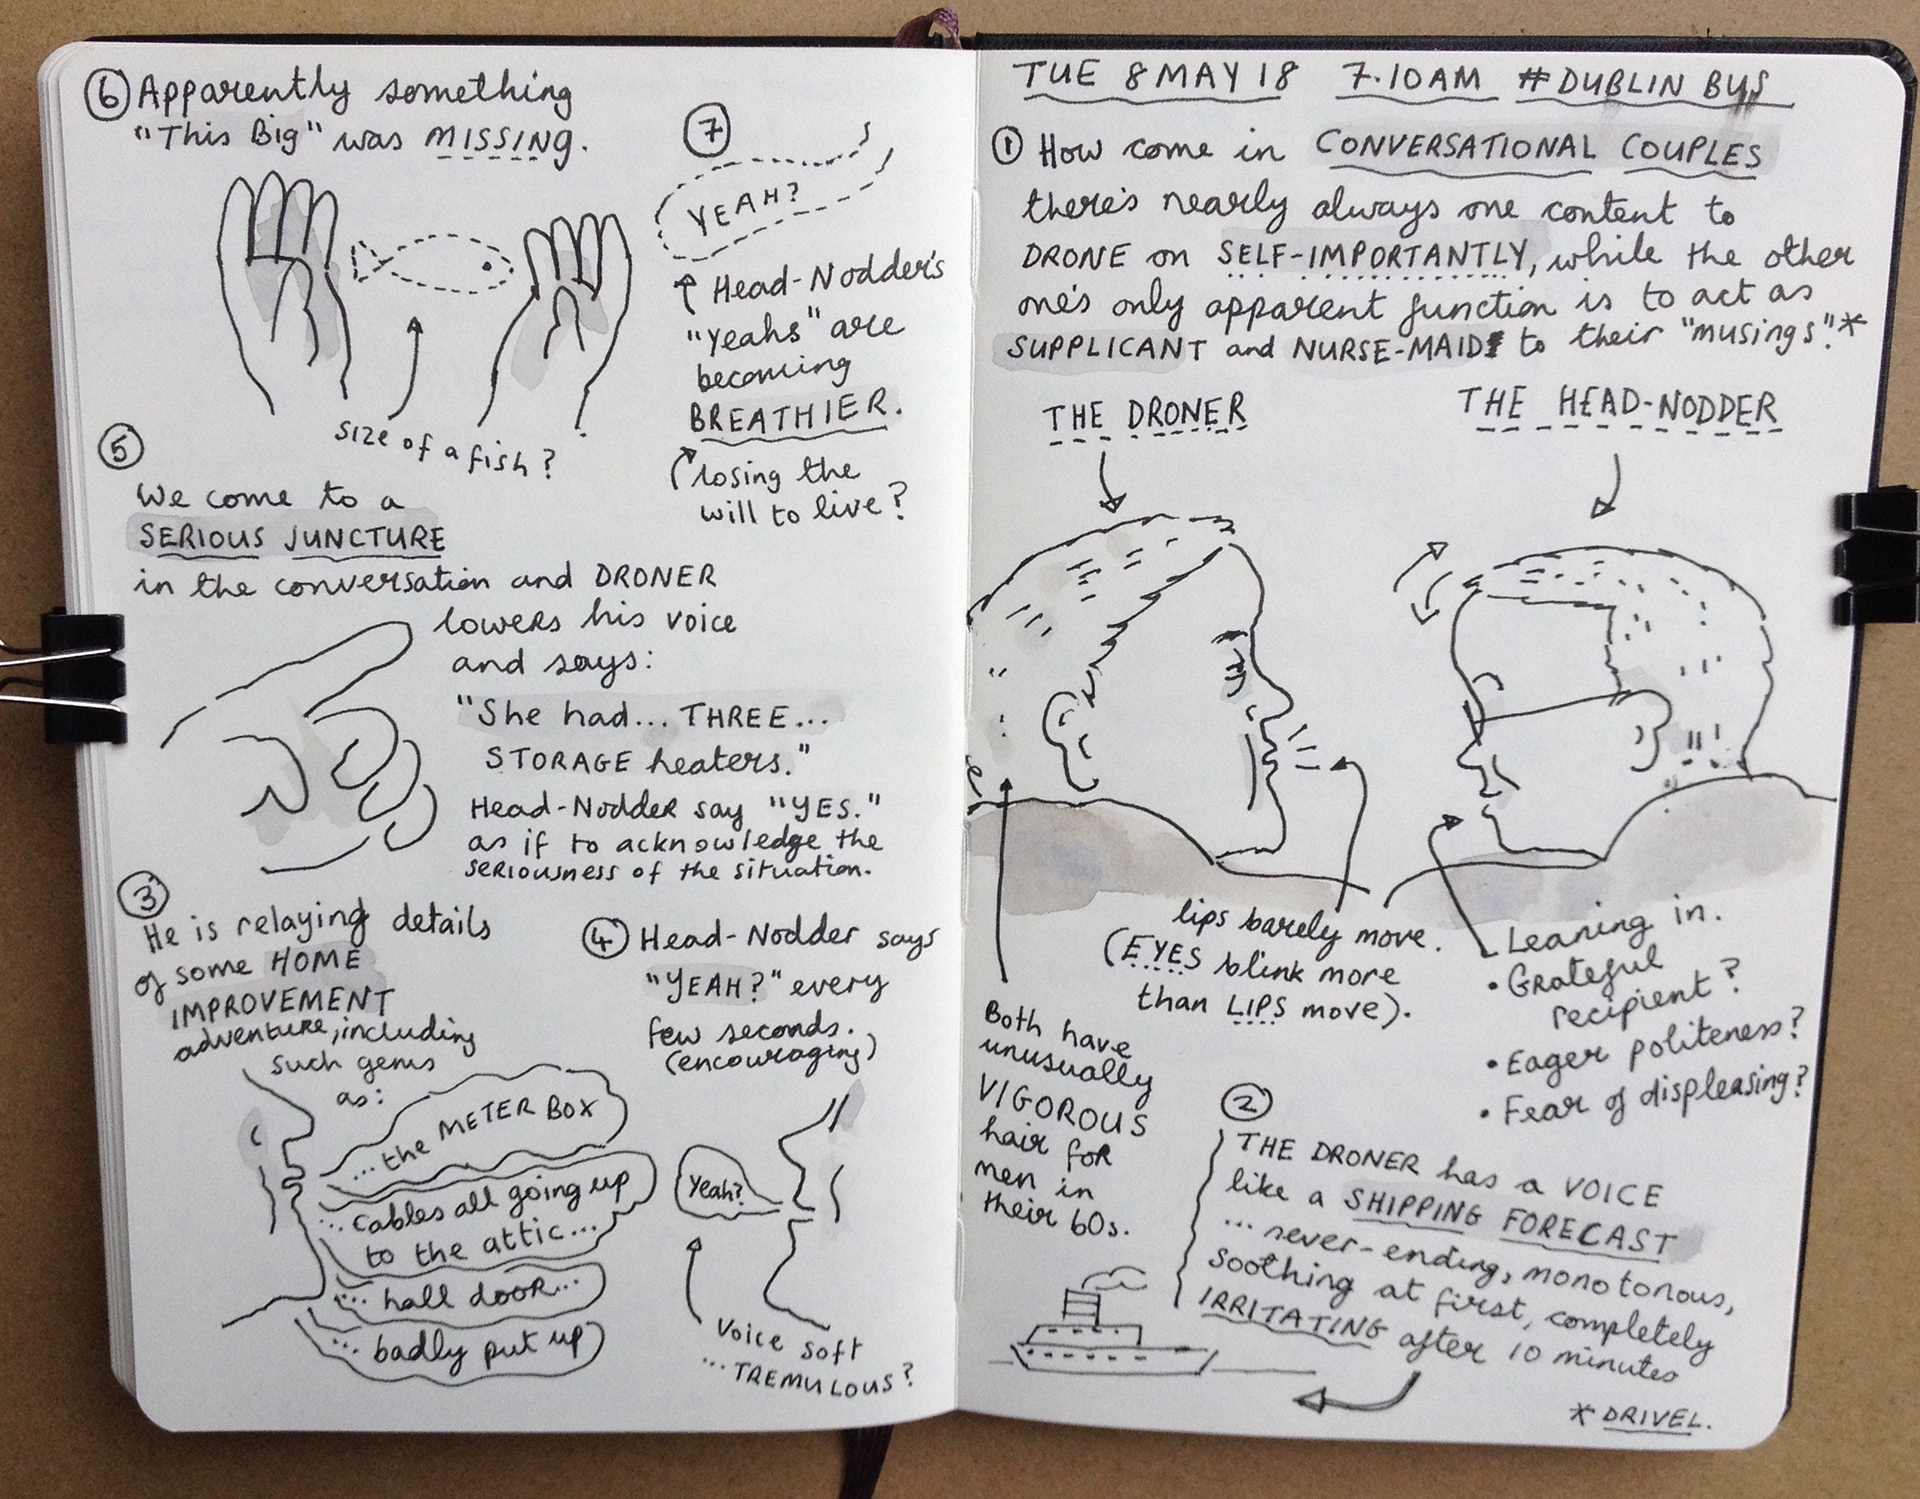 TUE 8 MAY 18 7.10AM #DUBLIN BUS
① How come in CONVERSATIONAL COUPLES
there's nearly always one content to
DRONE on SELF-IMPORTANTLY, while the other
one's only apparent function is to act as
SUPPLICANT and NURSE-MAID to their "musings".*
THE DRONER
THE HEAD-NODDER
lips barely move.
(EYES blink more
than LIPS move).
• Leaning in.
• Grateful
recipient?
• Eager politeness?
• Fear of displeasing?
Both have
unusually
VIGOROUS
hair for
men in
their 60s.
②
THE DRONER has a VOICE
like a SHIPPING FORECAST
... never-ending, monotonous,
soothing at first, completely
IRRITATING after 10 minutes
* DRIVEL.
③
He is relaying details
of some HOME
IMPROVEMENT
adventure, including
such gems
as:
...the METER BOX
...cables all going up
to the attic...
... hall door...
... badly put up
④ Head-Nodder says
"YEAH?" every
few seconds.
(encouraging)
Yeah?
Voice soft
...TREMULOUS?
⑤
We come to a
SERIOUS JUNCTURE
in the conversation and DRONER
lowers his voice
and says:
"She had... THREE...
STORAGE heaters."
Head-Nodder say "YES."
as if to acknowledge the
seriousness of the situation.
⑥ Apparently something
"This Big" was MISSING.
size of a fish?
⑦
YEAH?
Head-Nodder's
"Yeahs" are
becoming
BREATHIER.
losing the
will to live?